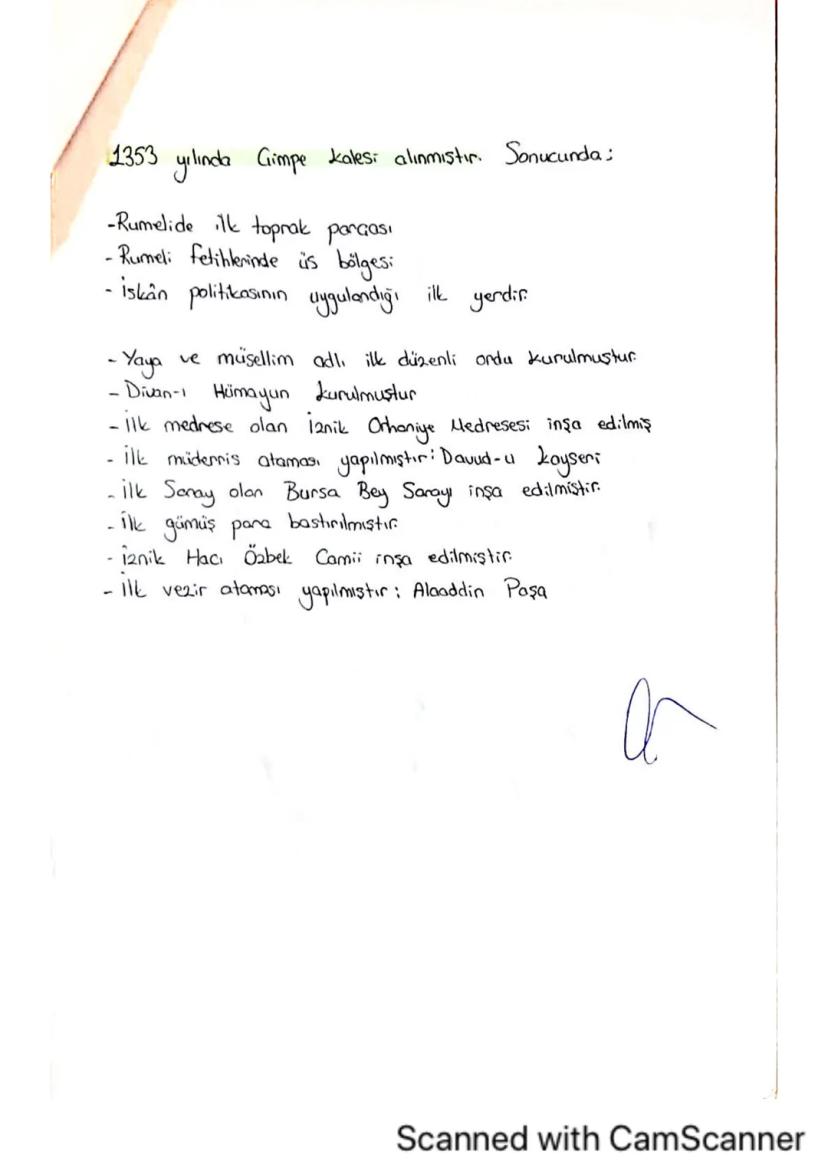 1353 yılında Çimpe kalesi alınmıştır. Sonucunda:
-Rumelide ilk toprak parçası
- Rumeli fetihlerinde üs bölgesi
- İskân politikasının uygulandığı ilk yerdir.
- Yaya ve müsellim adlı ilk düzenli ordu kurulmuştur
- Divan-ı Hümayun kurulmuştur
- İlk medrese olan İznik Orhaniye Medresesi inşa edilmiş
- İlk müderris ataması yapılmıştır: Davud-u kayseri
- İlk Saray olan Bursa Bey Sarayı inşa edilmiştir.
- İlk gümüş para bastırılmıştır.
- İznik Hacı Özbek Camii inşa edilmiştir.
- İlk vezir ataması yapılmıştır: Alaaddin Paşa
Scanned with CamScanner